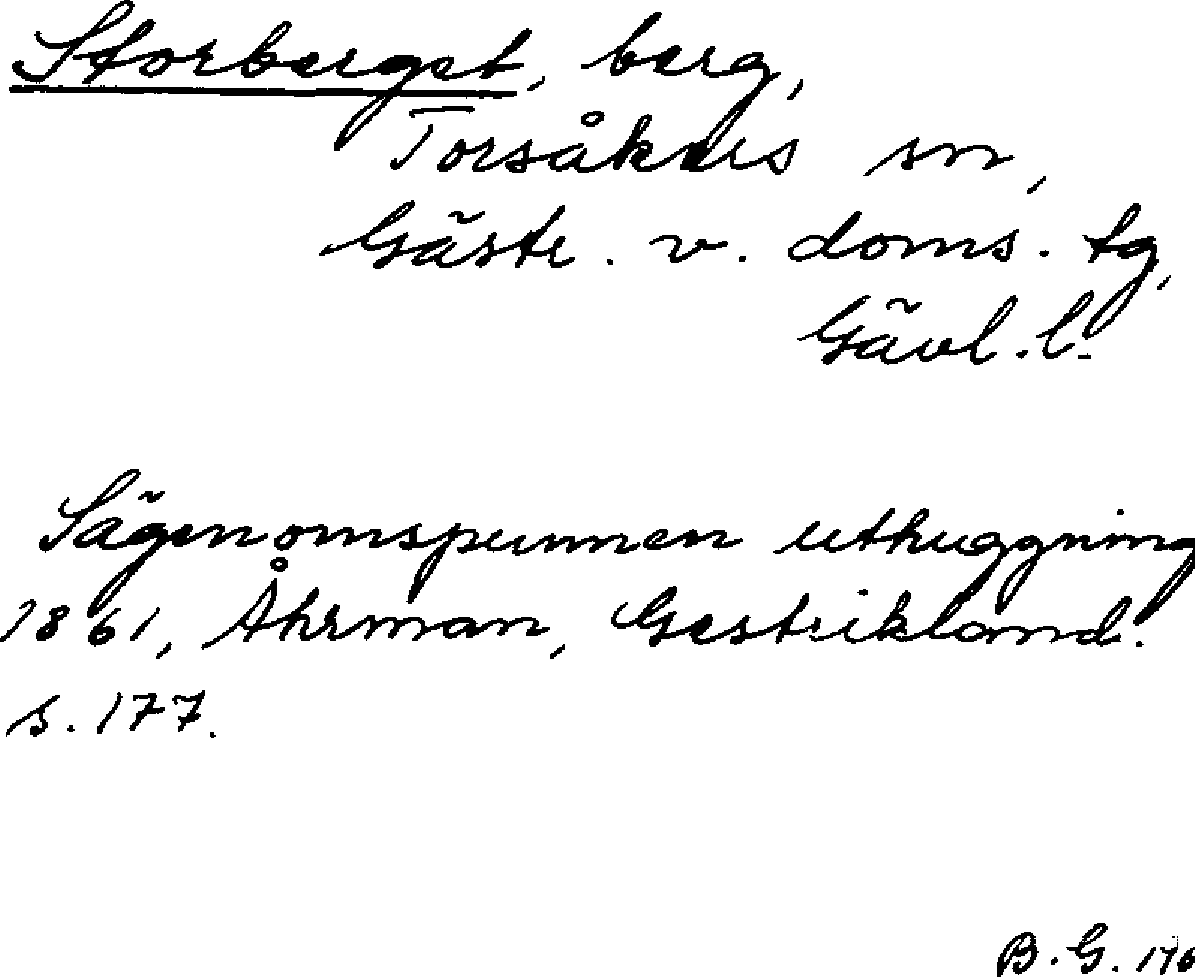 Storberget, berg,
Torsåkers sn,
Gäste. v. doms. tg,
Gävl. l.
Sägenomspunnen uthuggning
1861, Åhrman, Gestrikland.
s. 177.
B. G.